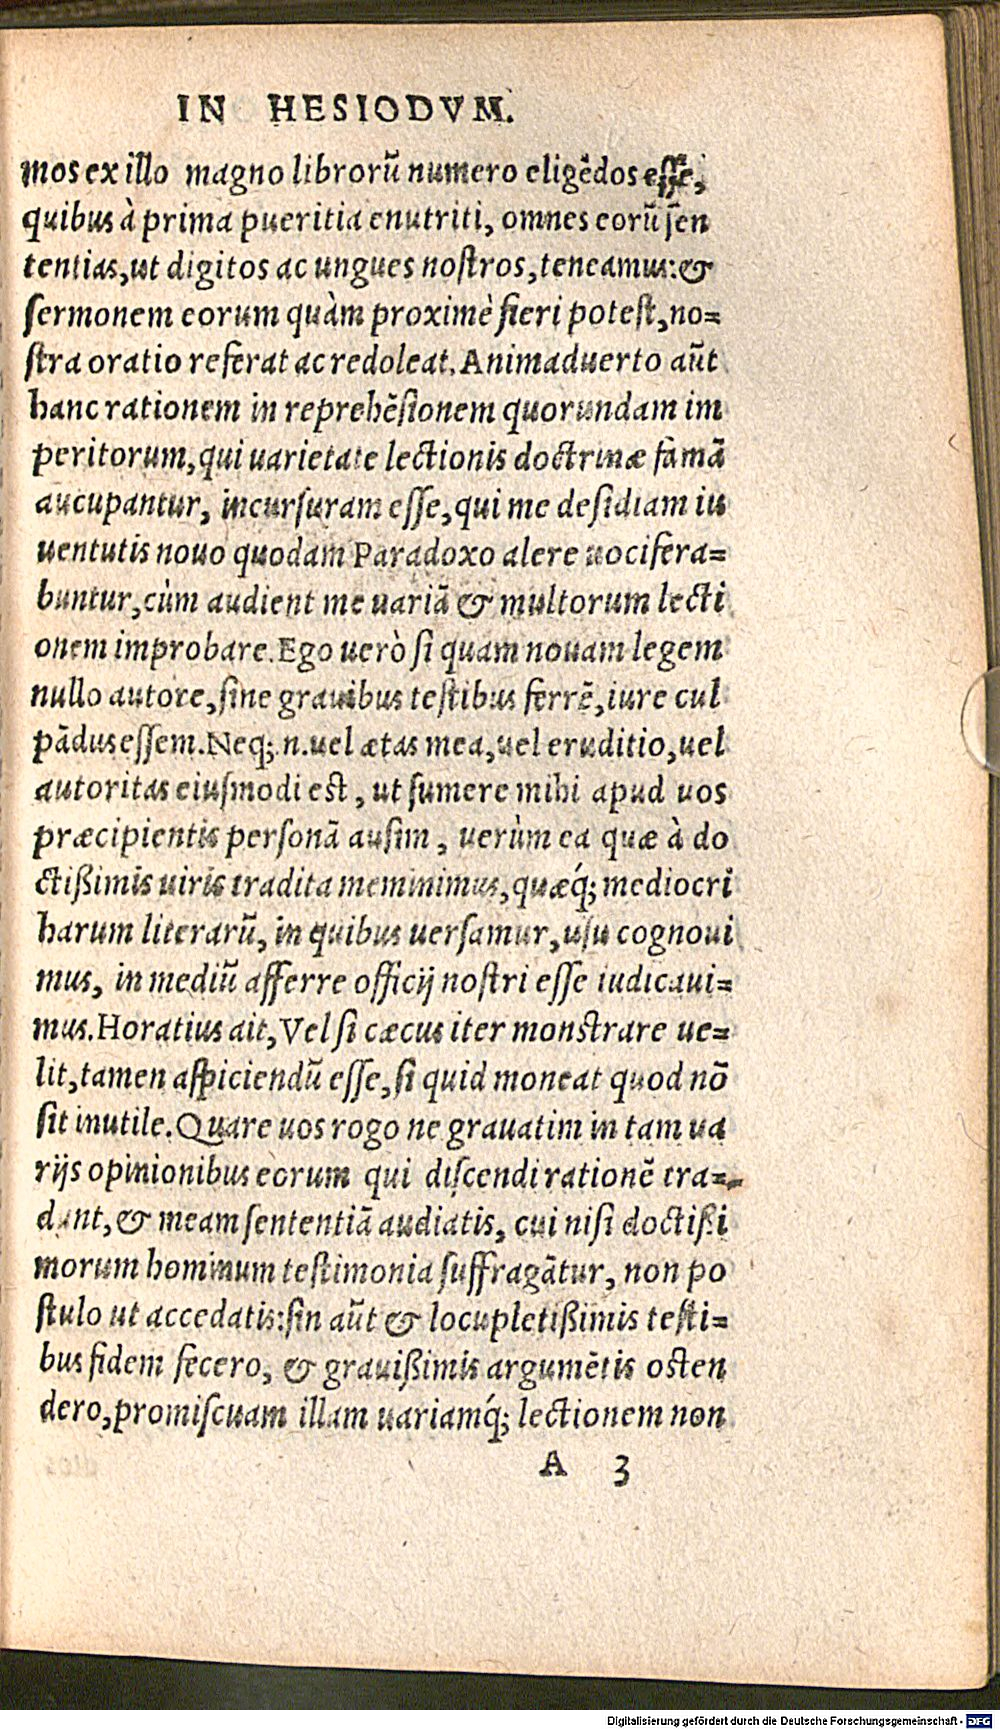 IN HESIODVM.
mos ex illo magno librorũ numero eligẽdos esse,
quibus à prima pueritia enutriti, omnes eorũ sen
tentias, ut digitos ac ungues nostros, teneamus: &
sermonem eorum quàm proximè fieri potest, no=
stra oratio referat ac redoleat. Animaduerto aũt
hanc rationem in reprehẽsionem quorundam im
peritorum, qui uarietate lectionis doctrinæ famã
aucupantur, incursuram esse, qui me desidiam iu
uentutis nouo quodam Paradoxo alere uocifera=
buntur, cùm audient me uariã & multorum lecti
onem improbare. Ego uerò si quam nouam legem
nullo autore, sine grauibus testibus ferrẽ, iure cul
pãdus essem. Neq;. n. uel ætas mea, uel eruditio, uel
autoritas eiusmodi est, ut sumere mihi apud uos
præcipientis personã ausim, uerùm ea quæ à do
ctißimis uiris tradita meminimus, quæq́; mediocri
harum literarũ, in quibus uersamur, usu cognoui
mus, in mediũ afferre officij nostri esse iudicaui=
mus. Horatius ait, Vel si cæcus iter monstrare ue=
lit, tamen aspiciendũ esse, si quid moneat quod nõ
sit inutile. Quare uos rogo ne grauatim in tam ua
rijs opinionibus eorum qui discendi rationẽ tra=
dunt, & meam sententiã audiatis, cui nisi doctißi
morum hominum testimonia suffragãtur, non po
stulo ut accedatis: sin aũt & locupletißimis testi=
bus fidem fecero, & grauißimis argumẽtis osten
dero, promiscuam illam uariamq́; lectionem non
A 3
Digitalisierung gefördert durch die Deutsche Forschungsgemeinschaft - DFG